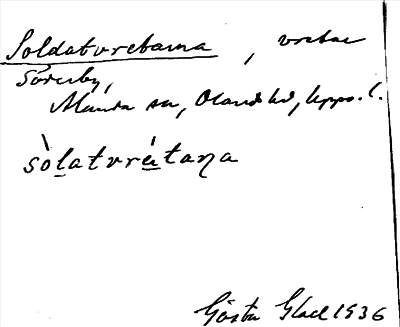 Soldatvretarna, vretar
Sörby,
Munsö sn, Ölands hd, Upps. l.
sòlatvrétaṇa
Gösta Glad 1936